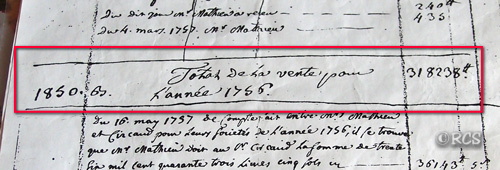 Du dit jour Mr. Mathieu a reçu 240#
Du 4. mars. 1757. Mr. Mathieu 435
Total de La vente pour 318238#
1850. 63. L'année 1756
Du 16. may 1757 de Compte fait entre Mrs Mathieu
et Cicaud pour Leurs societés de L'année 1756, il se trouve
que Mr. Mathieu doit au Sr. Cicaud La somme de trente
six mil cent quarante trois Livres cinq sols cy 36143# 5.s
©RCS